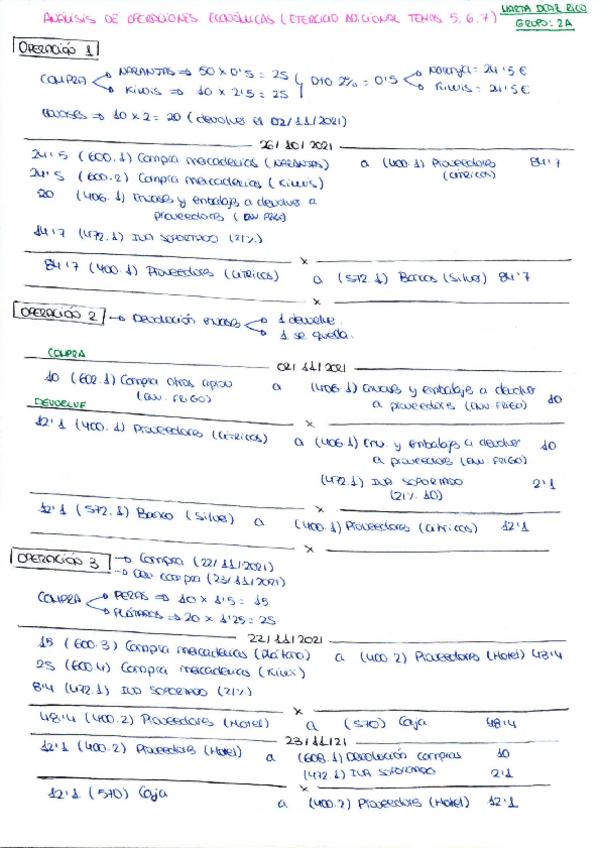 ANÁLISIS DE OPERACIONES ECONÓMICAS (EJERCICIO ADICIONAL TEMAS 5, 6, 7)
MARTA DÍAZ RICO
GRUPO: 2A
OPERACIÓN 1
COMPRA NARANJAS ⇒ 50 x 0'5 = 25
KIWIS ⇒ 10 x 2'5 = 25
DTO 2% = 0'5
Naranja = 24'5 €
Kiwis = 24'5 €
ENVASES ⇒ 10 x 2 = 20 (devolver el 02/11/2021)
26/10/2021
24'5 (600.1) Compra mercaderías (NARANJAS) a (400.1) Proveedores (cítricos) 84'7
24'5 (600.2) Compra mercaderías (Kiwis)
20 (406.1) Envases y embalajes a devolver a
proveedores (ENV. FRIGO)
14'7 (472.1) IVA SOPORTADO (21%)
x
84'7 (400.1) Proveedores (Cítricos) a (572.1) Bancos (Silver) 84'7
x
OPERACIÓN 2 → Devolución envases
1 devuelve.
1 se queda.
COMPRA
02/11/2021
10 (602.1) Compra otros aprov a (406.1) Envases y embalajes a devolver
(ENV. FRIGO) a proveedores (ENV. FRIGO) 10
DEVUELVE
x
12'1 (400.1) Proveedores (Cítricos) a (406.1) Env. y embalajes a devolver 10
a proveedores (ENV. FRIGO)
(472.1) IVA SOPORTADO 2'1
(21% 10)
x
12'1 (572.1) Banco (Silver) a (400.1) Proveedores (Cítricos) 12'1
x
OPERACIÓN 3 → Compra (22/11/2021)
→ Dev compra (23/11/2021)
COMPRA PERAS ⇒ 10 x 1'5 = 15
PLÁTANOS ⇒ 20 x 1'25 = 25
22/11/2021
15 (600.3) Compra mercaderías (Plátano) a (400.2) Proveedores (Hotel) 48'4
25 (600.4) Compra mercaderías (Kiwi)
8'4 (472.1) IVA SOPORTADO (21%)
x
48'4 (400.2) Proveedores (Hotel) a (570) Caja 48'4
23/11/21
12'1 (400.2) Proveedores (Hotel) a (608.1) Devolución compras 10
(472.1) IVA SOPORTADO 2'1
x
12'1 (570) Caja a (400.2) Proveedores (Hotel) 12'1